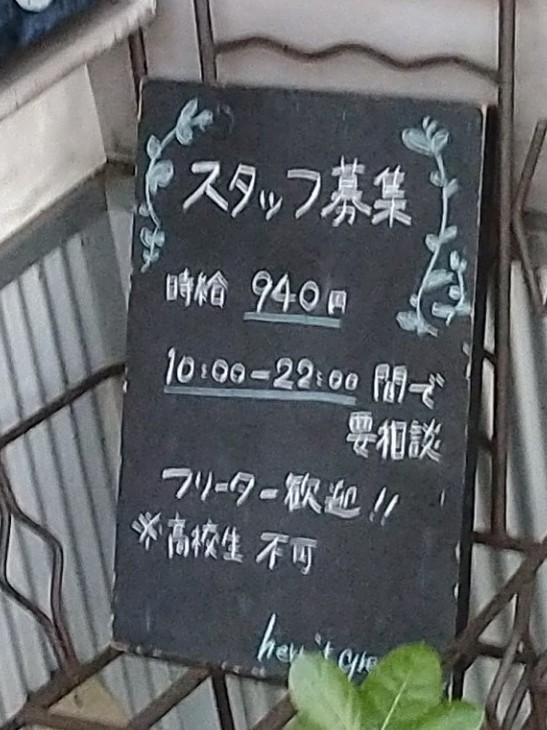 スタッフ募集
時給 940円
10:00-22:00 間で
要相談
フリーター歓迎!!
※高校生 不可